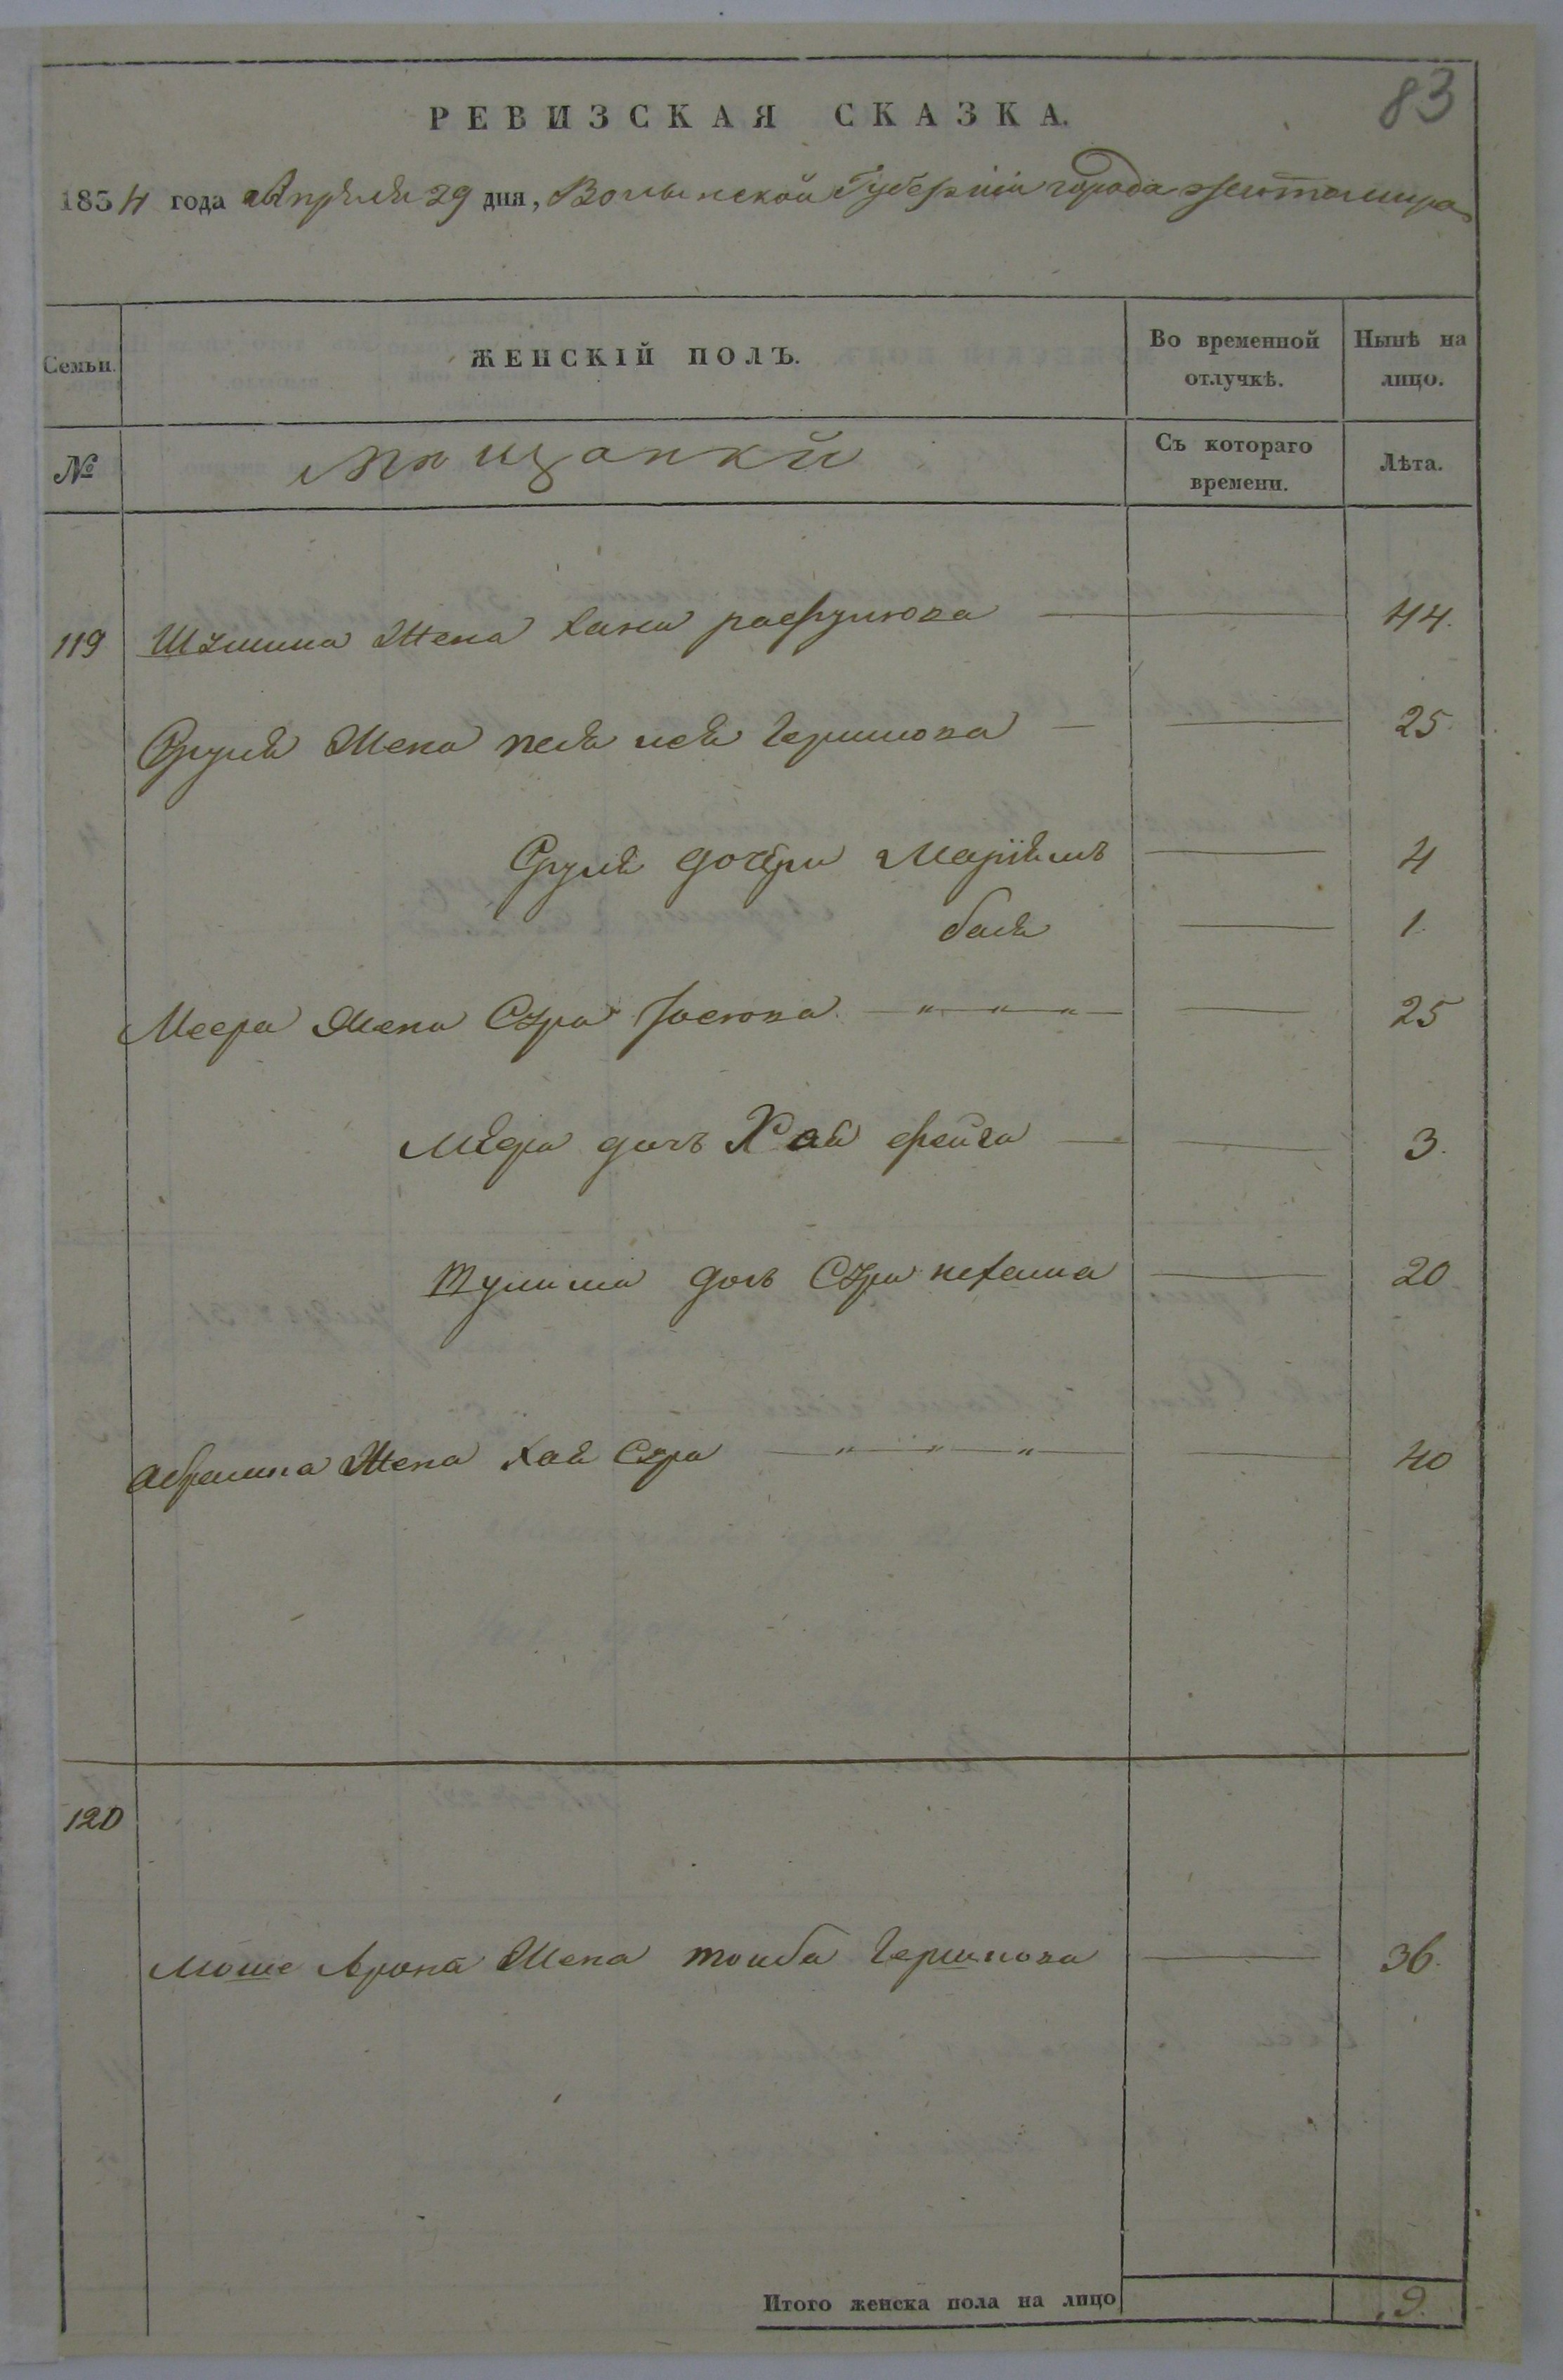 83
РЕВИЗСКАЯ СКАЗКА.
1854 года Апреля 29 дня, Волынской Губернии города Житомира
Семьи.
ЖЕНСКІЙ ПОЛЪ.
Во временной отлучкѣ.
Нынѣ на лицо.
№
Мещанки
Съ котораго времени.
Лѣта.
119 Шлима Жена Хана 44.
Сруля Жена Песя лея Гершкова 25.
Сруля дочери Маріямъ 4
бася 1.
Меера Жена Сура Іоскова 25
Меера дочь Хая фейга 3.
дочь Сура нехама 20
Абрамма Жена Хая Сура 40
120
Моше Арона Жена тойба Гершкова 36.
Итого женска пола на лицо 9.